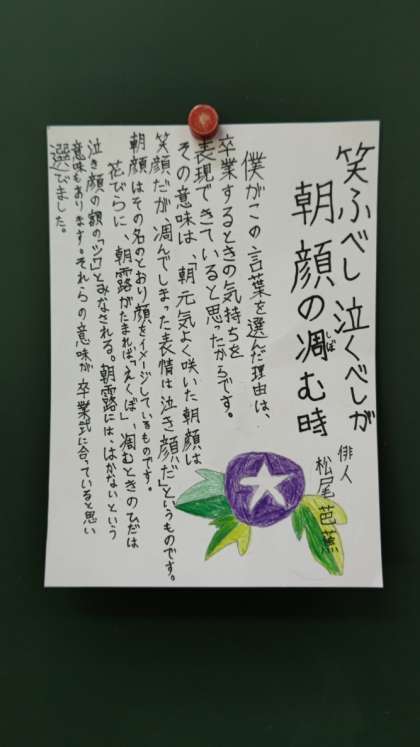 笑ふべし泣くべしが
朝顔の凋む時
しぼ
俳人
松尾芭蕉
僕がこの言葉を選んだ理由は、
卒業するときの気持ちを
表現できていると思ったからです。
その意味は、「朝元気よく咲いた朝顔は
笑顔だが凋んでしまった表情は泣き顔だ」というものです。
朝顔はその名のとおり顔をイメージしているものです。
花びらに、朝露がたまれば「えくぼ」、凋むときのひだは
泣き顔の額の「シワ」とみなされる。朝露には、はかないという
意味もあります。それらの意味が卒業式に合っていると思い
選びました。